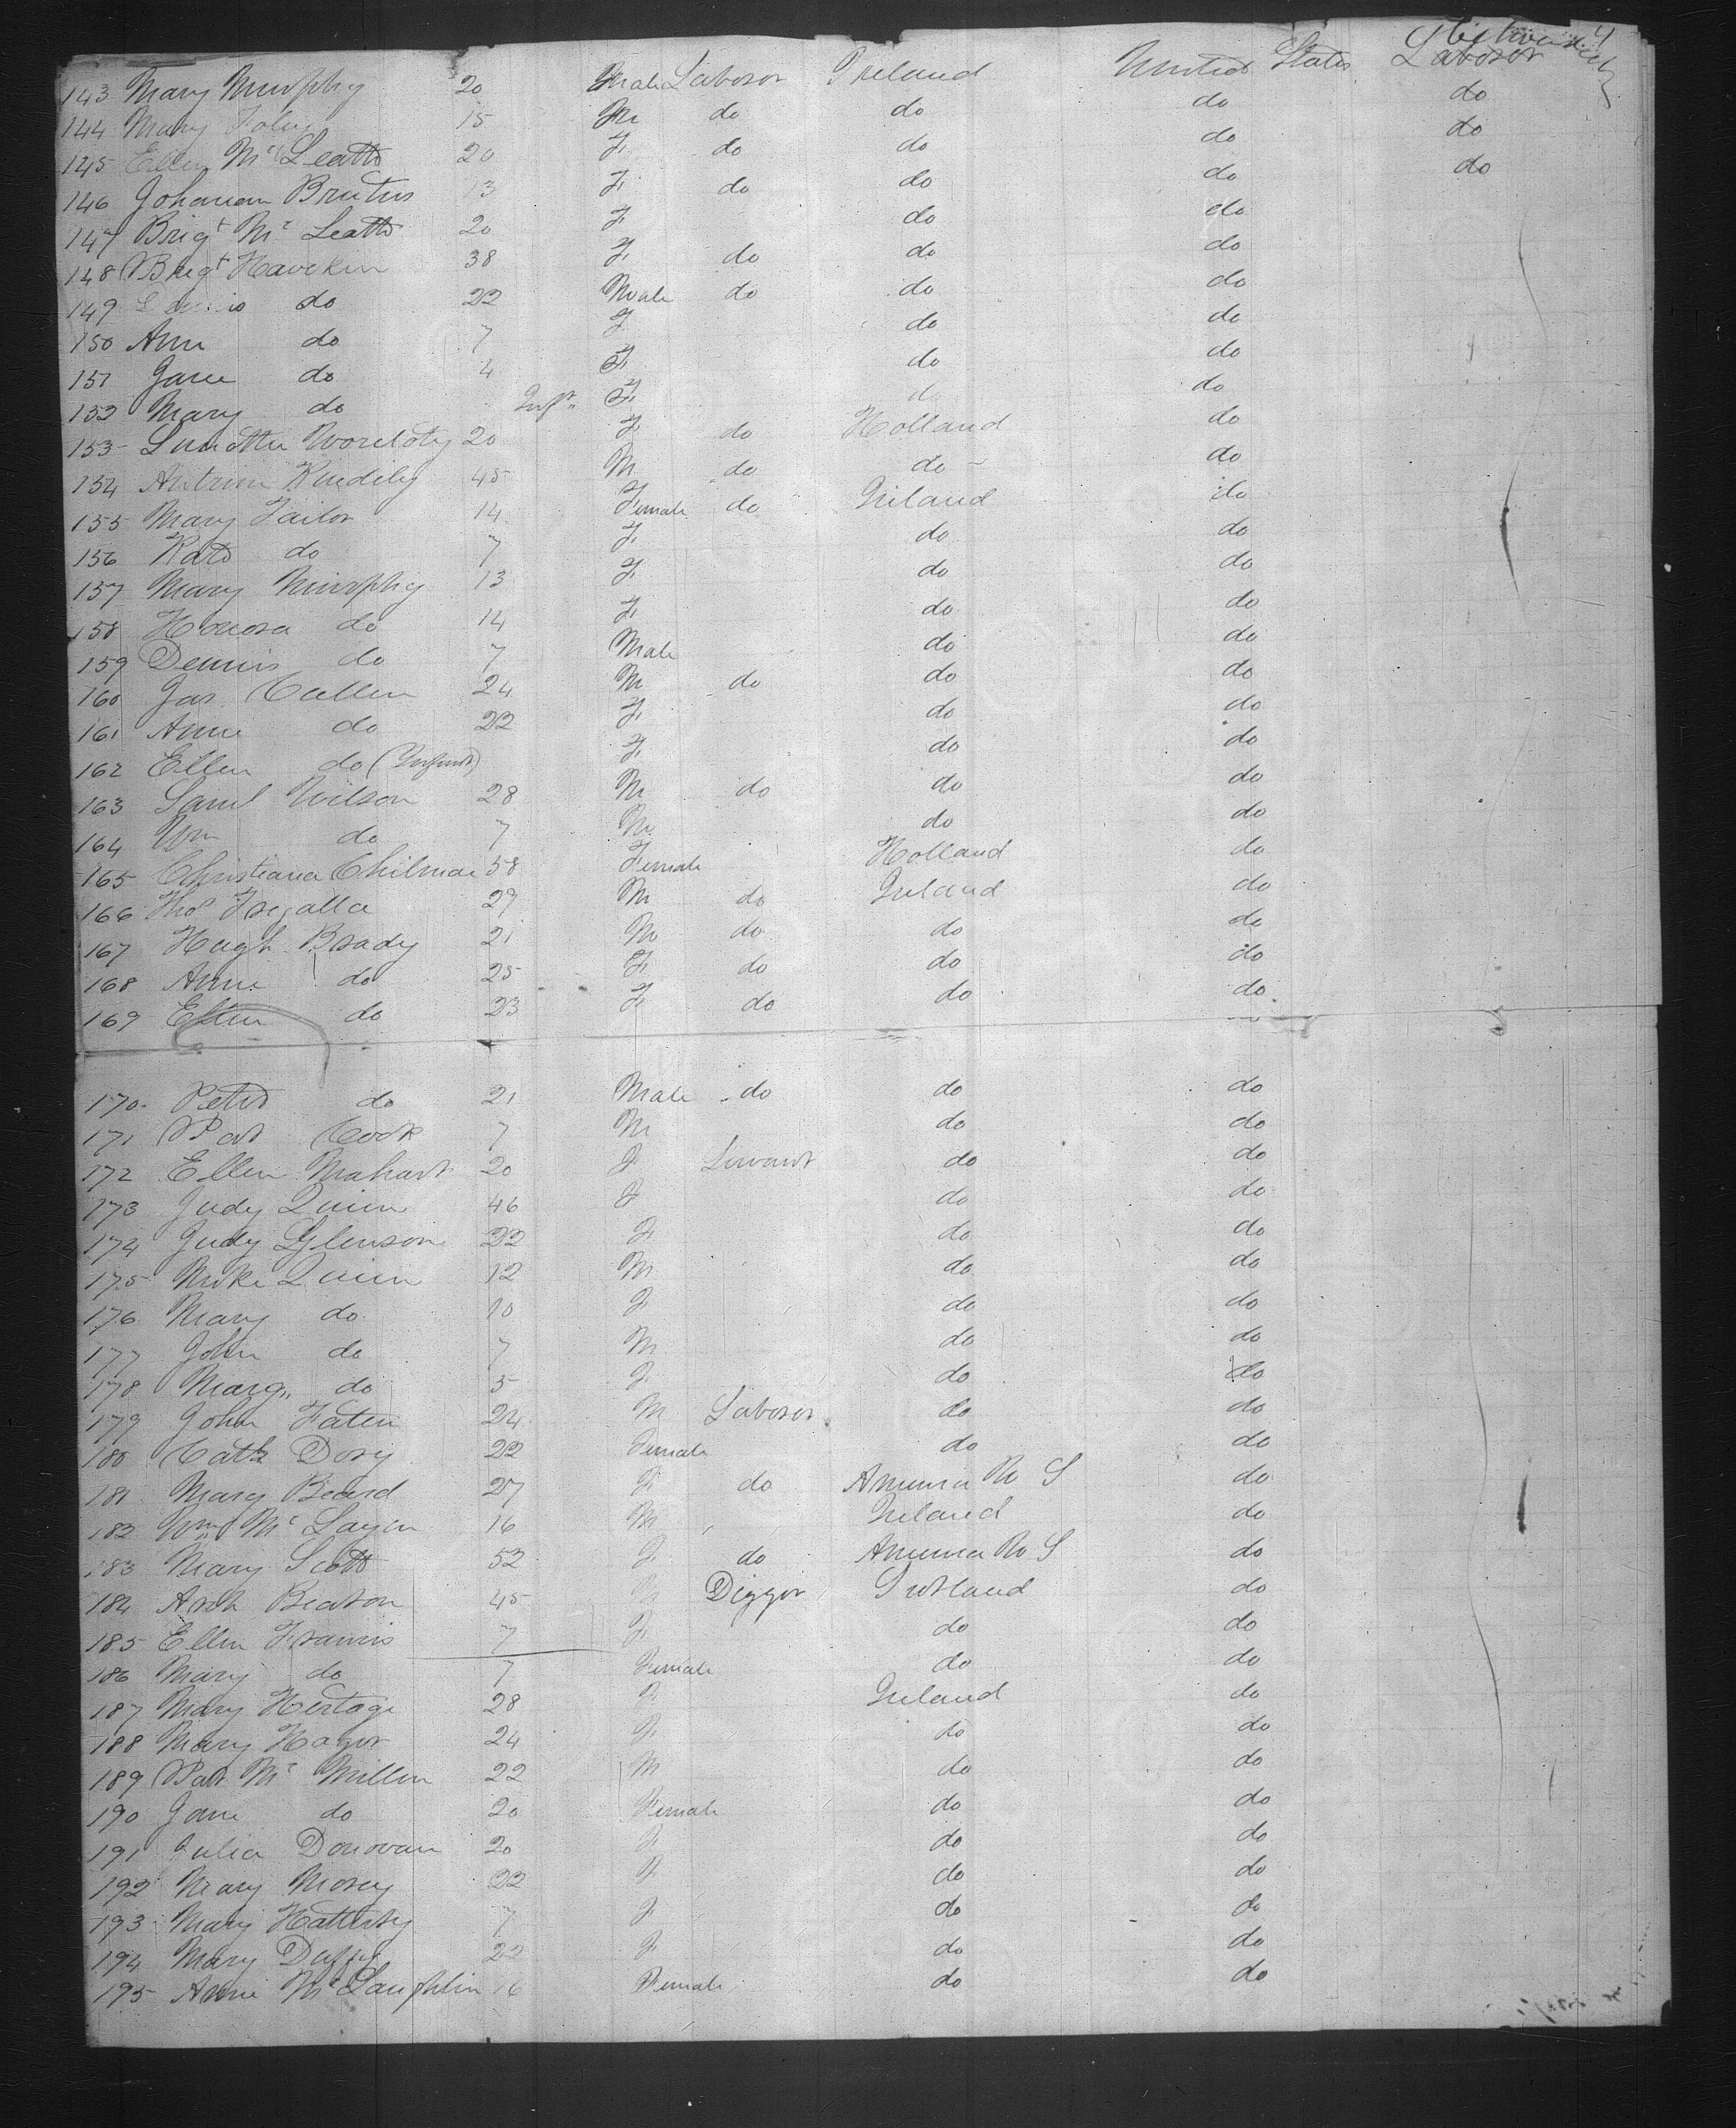 4
143 Mary Murphy 20 Male Laborer Ireland United States Laborer
144 Mary Foley 15 M do do do do
145 Ellen Mc Leatts 20 F. do do do do
146 Johanan Brutus 13 F. do do do do
147 Brigt Mc Leatts 20 F. do do
148 Brigt Havekin 38 F. do do do
149 do 22 Male do do do
150 Ann do 7 F. do do
151 Jane do 4 F. do do
152 Mary do Inft. F. do do
153 20 F. do Holland do
154 45 M do do do
155 Mary Tailor 14 Female do Ireland do
156 Kate do 7 F. do do
157 Mary Murphy 13 F. do do
158 Honora do 14 F. do do
159 Dennis do 7 Male do do
160 Jas. Cullen 24 M do do do
161 Anne do 22 F. do do
162 Ellen do (Infant) F. do do
163 Saml Wilson 28 M do do do
164 Wm do 7 M. do do
165 Christiana Chilmai 38 Female Holland do
166 Thos Fregalla 29 M do Ireland do
167 Hugh Brady 21 M do do do
168 Anne do 25 F. do do do
169 Ellen do 23 F. do do do
170 Peter do 21 Male do do do
171 Pat Cook 7 M do do
172 Ellen Mahart 20 F Servant do do
173 Judy Quinn 46 F do do
174 Judy Glenson 22 F. do do
175 Mike Quinn 12 M do do
176 Mary do 10 F. do do
177 John do 7 M do do
178 Marg. do 5 F. do do
179 John Faten 24 M Laborer do do
180 Cath Dory 22 Female do do
181 Mary Beard 27 F. do America do
182 Wm Mc Layin 16 M Ireland do
183 Mary Scott 52 F. do America do
184 Arch Beaton 45 M Digger Scotland do
185 Ellen Francis 7 F. do do
186 Mary do 7 Female do do
187 Mary Hertage 28 F. Ireland do
188 Mary Hager 24 F. do do
189 Pat Mc Millen 22 M do do
190 Jane do 20 Female do do
191 Julia Donovan 20 F. do do
192 Mary Mosey 22 F. do do
193 Mary Hattersy 7 F. do do
194 Mary Duffy 22 F. do do
195 Annie Mc Laughlin 16 Female do do